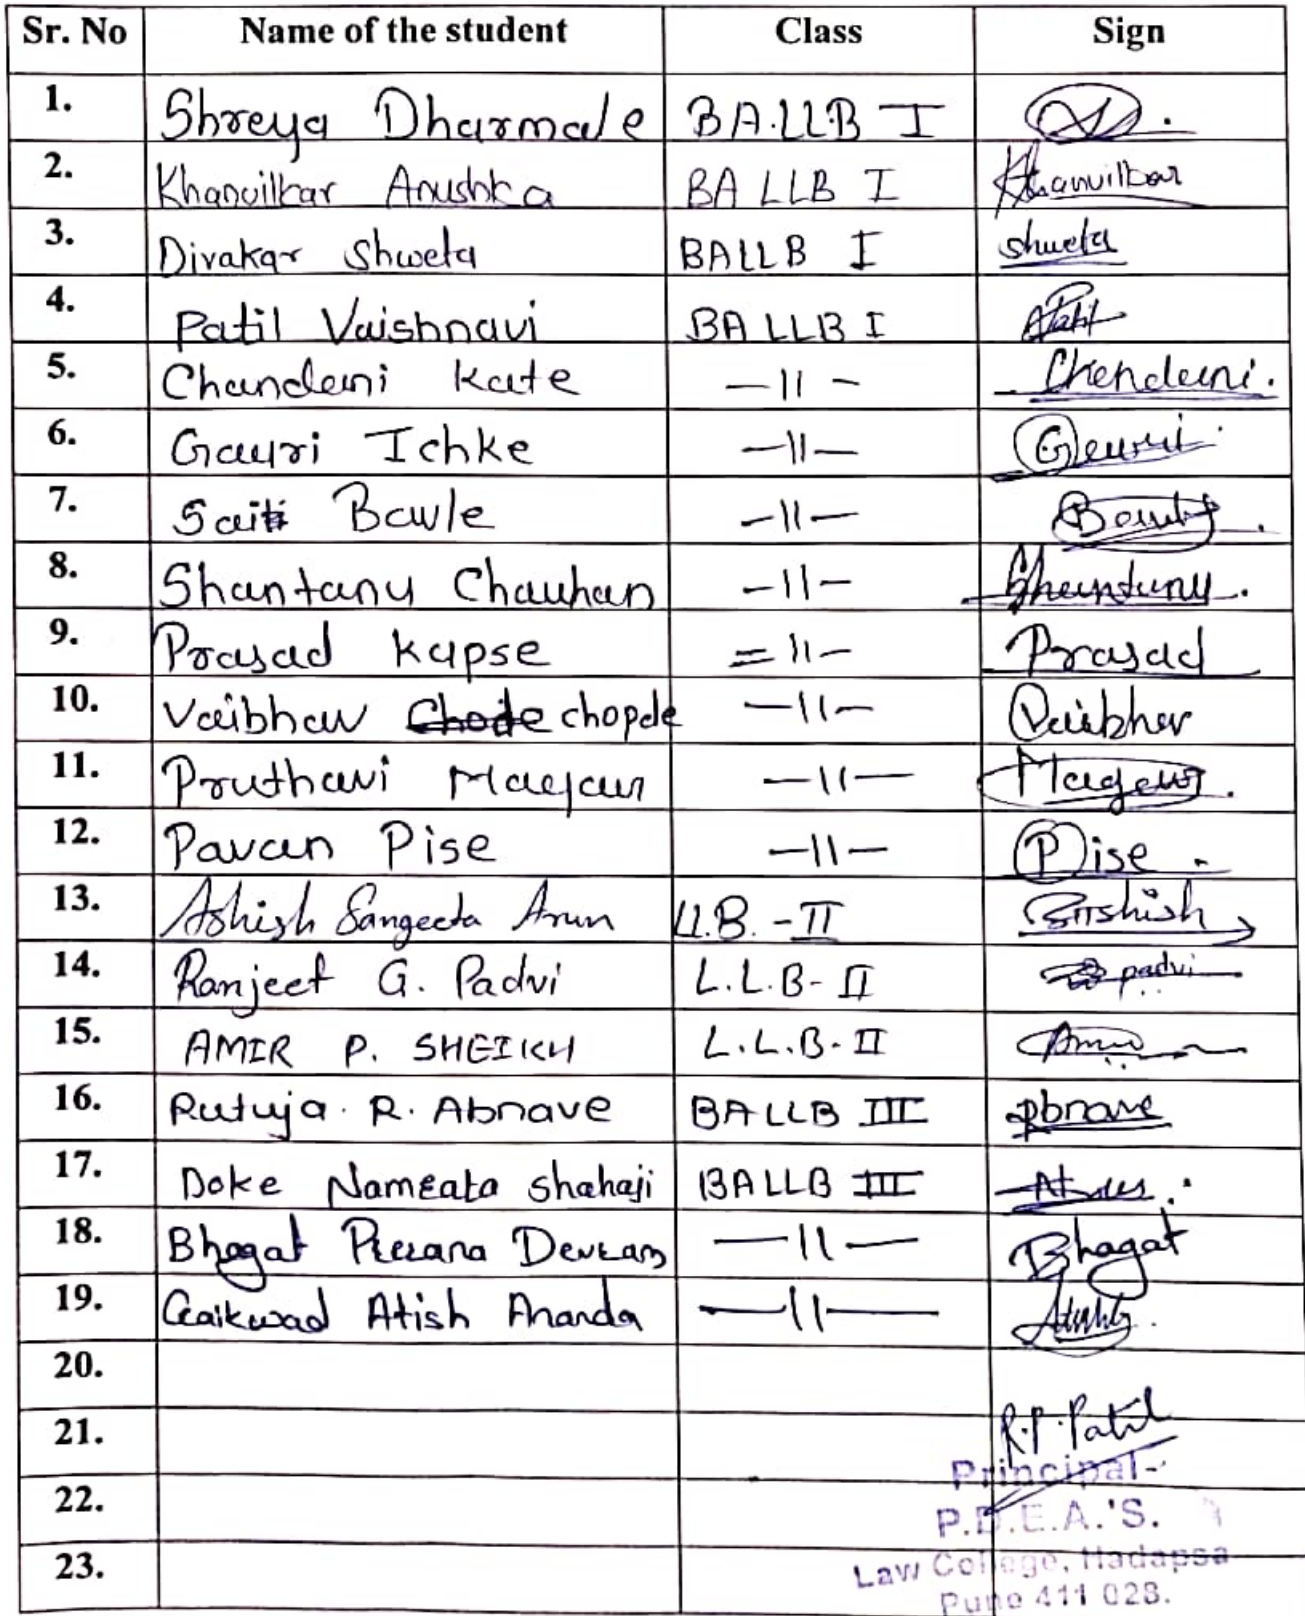 Sr. No Name of the student Class Sign
1. Shreya Dharmale BA.LLB I
2. Khanvilkar Anushka BA LLB I Khanvilkar
3. Divakar Shweta BALLB I shweta
4. Patil Vaishnavi BA LLB I Patil
5. Chandani Kate —11— Chandani.
6. Gauri Ichke —11— Gauri
7. Sai Bawle —11—
8. Shantanu Chauhan —11— Shantanu.
9. Prasad Kapse =11— Prasad
10. Vaibhav Chode chopde —11— Vaibhav
11. Pruthavi Magar —11— Magar.
12. Pavan Pise —11— Pise
13. Ashish Sangeeta Arun LL.B. - II Ashish
14. Ranjeet G. Padvi L.L.B- II padvi
15. AMIR P. SHEIKH L.L.B- II Amir
16. Rutuja. R. Abnave BALLB III Abnave
17. Doke Namrata shahaji BALLB III
18. Bhagat Prerana Devram —11— Bhagat
19. Gaikwad Atish Ananda —11—
20.
21. R.P. Patil
Principal
22. P.D.E.A.'S.
23. Law College, Hadapsa
Pune 411 028.